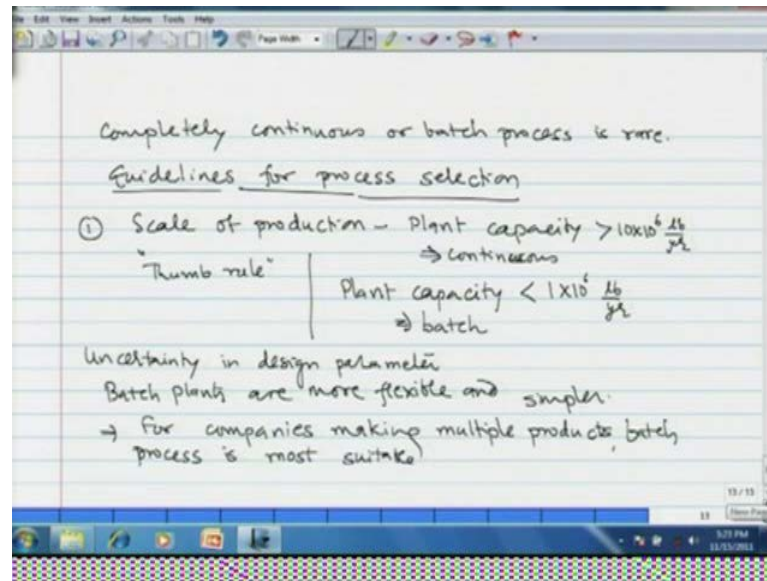 File Edit View Insert Actions Tools Help
Page Width
Completely continuous or batch process is rare.
Guidelines for process selection
① Scale of production - Plant capacity > 10x10⁶ lb/yr
⇒ continuous
"Thumb rule"
Plant capacity < 1x10⁶ lb/yr
⇒ batch
Uncertainty in design parameter
Batch plants are more flexible and simpler.
→ For companies making multiple products, batch
process is most suitable
13/13
13
New Page
3:23 PM
11/15/2011